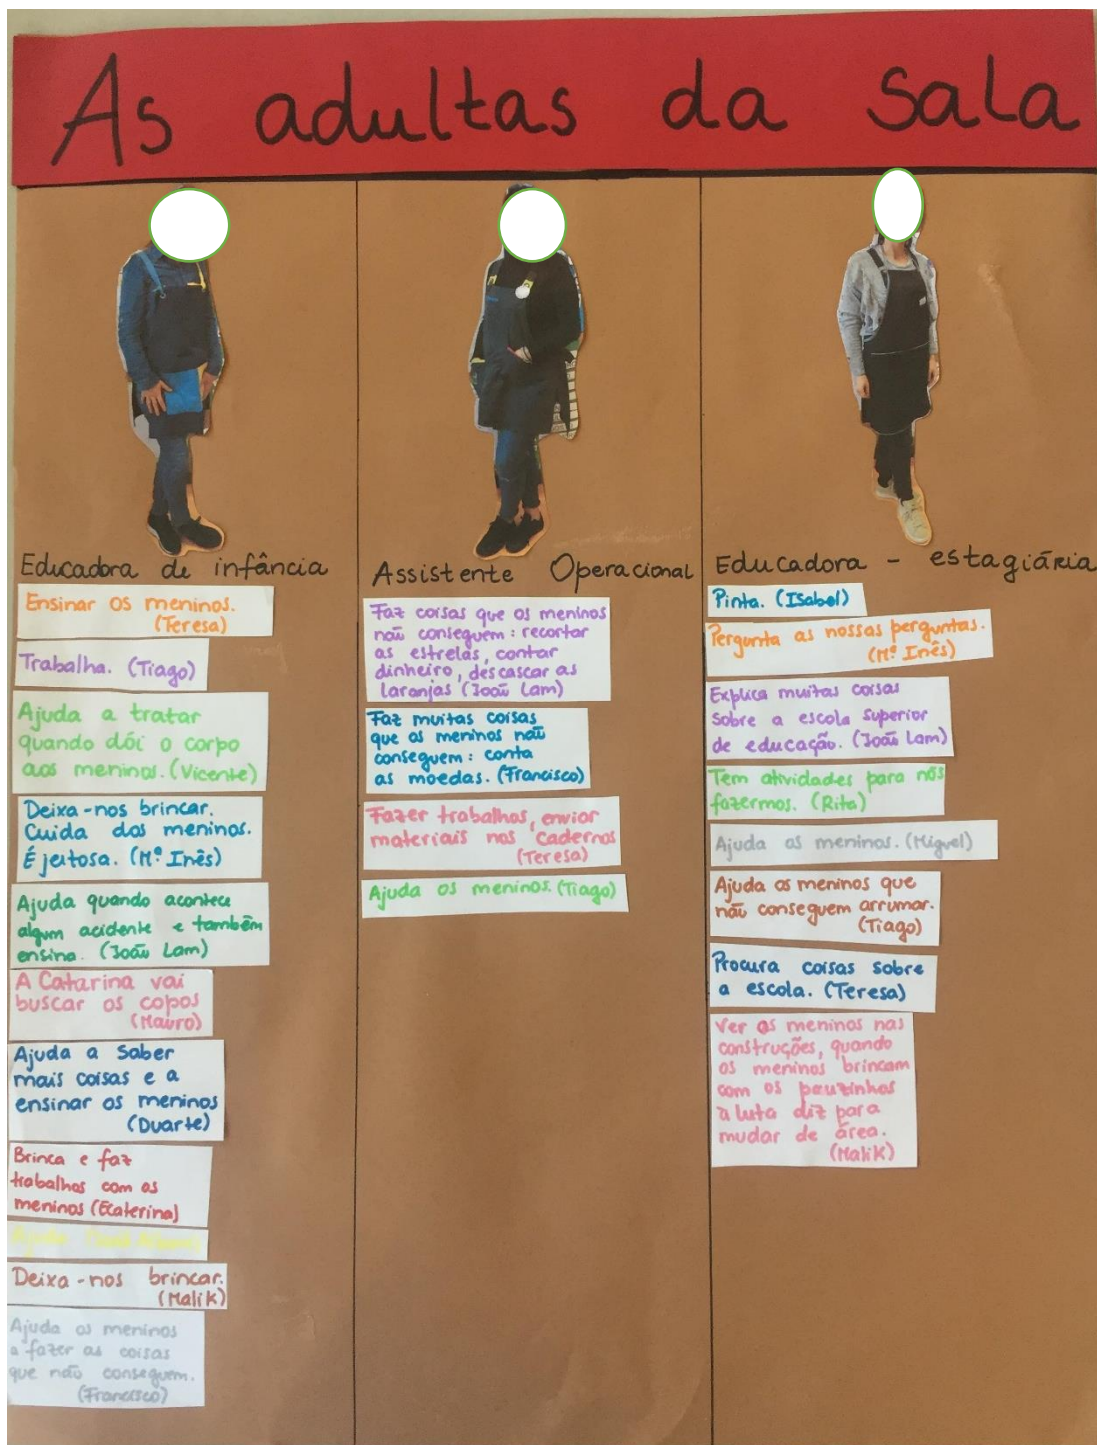 As adultas da sala
Educadora de infância
Ensinar os meninos.
(Teresa)
Trabalha. (Tiago)
Ajuda a tratar
quando dói o corpo
aos meninos. (Vicente)
Deixa-nos brincar.
Cuida dos meninos.
É jeitosa. (Mª Inês)
Ajuda quando acontece
algum acidente e também
ensina. (João Lam)
A Catarina vai
buscar os copos
(Mauro)
Ajuda a saber
mais coisas e a
ensinar os meninos
(Duarte)
Brinca e faz
trabalhos com os
meninos (Ecaterina)
Ajuda
Deixa-nos brincar.
(Malik)
Ajuda os meninos
a fazer as coisas
que não conseguem.
(Francisco)
Assistente Operacional
Faz coisas que os meninos
não conseguem: recortar
as estrelas, contar
dinheiro, descascar as
laranjas (João Lam)
Faz muitas coisas
que os meninos não
conseguem: conta
as moedas. (Francisco)
Fazer trabalhos, enviar
materiais nos cadernos
(Teresa)
Ajuda os meninos. (Tiago)
Educadora - estagiária
Pinta. (Isabel)
Pergunta as nossas perguntas.
(Mª Inês)
Explica muitas coisas
sobre a escola superior
de educação. (João Lam)
Tem atividades para nós
fazermos. (Rita)
Ajuda os meninos. (Miguel)
Ajuda os meninos que
não conseguem arrumar.
(Tiago)
Procura coisas sobre
a escola. (Teresa)
Ver os meninos nas
construções, quando
os meninos brincam
com os pauzinhos
à luta diz para
mudar de área.
(Malik)